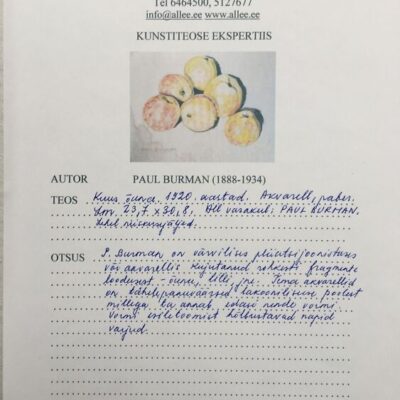 Tel 6464500, 5127677
info@allee.ee www.allee.ee
KUNSTITEOSE EKSPERTIIS
AUTOR PAUL BURMAN (1888-1934)
TEOS Kuus õuna. 1920. aastad. Akvarell, paber.
Lm. 23,7 x 30,8, All vasakul: PAUL BURMAN.
Lehel niiskusjäljed.
OTSUS P. Burman on värvilises pliiatsijoonistuses
või akvarellis kujutanud rohkesti fragmente
loodusest - õunu, lilli jne. Tema akvarellid
on tähelepanuväärsed lakoonilisuse poolest
millega ta annab edasi nende vormi
vormi esiletoomist hõlbustavad napid
varjud.